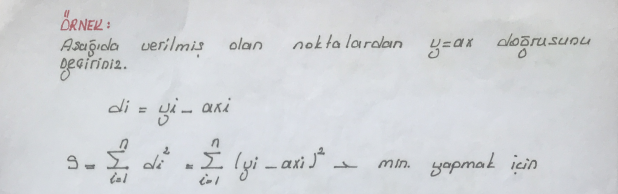 ÖRNEK:
Aşağıda verilmiş olan noktalardan y=ax doğrusunu
geçiriniz.
di = yi - axi
S = \sum_{i=1}^{n} di^2 = \sum_{i=1}^{n} (yi - axi)^2 → min. yapmak için